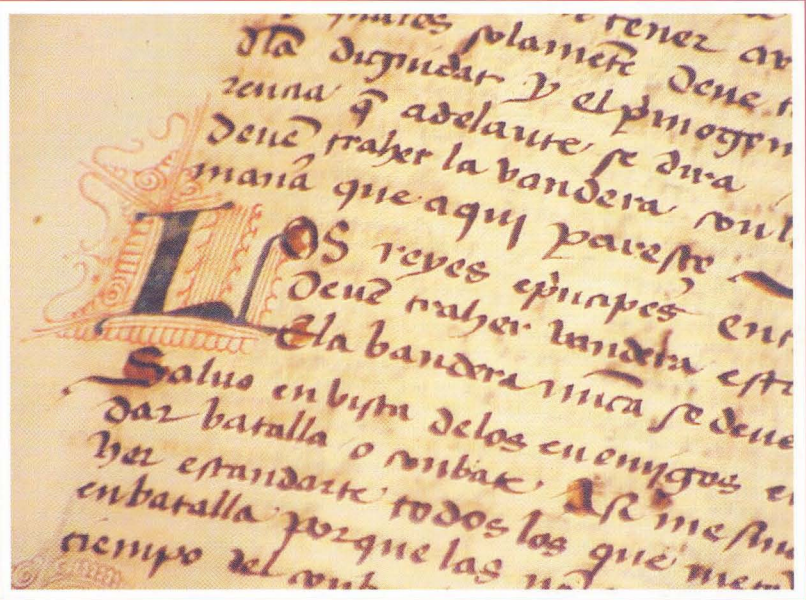 tener
dla dignidat solamēte deue
rencia q̄ adelante y el pmogen
deuē traher la vandera se dira
manā que aqui paresçe con l
Los reyes epncipes ent
deuē traher vandera
Ela bandera nūca se deue
Saluo en bista delos enemigos e
dar batalla o conbate Asi me
her estandarte todos los que
en batalla porque las
tiempo del